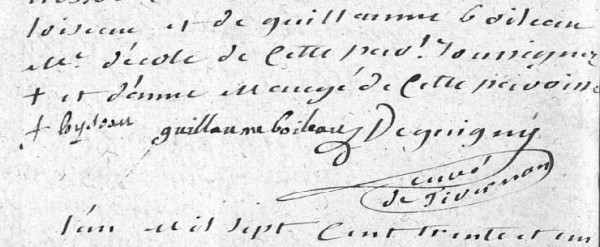 loiseau et de guillaume boileau
Me. d'ecole de cette par. soussignez
+ et d'anne Maugé de cette paroisse
+ loyseau guillaume boileau Deguigny
curé
de Tivernon
l'an Mil sept cent trente et un